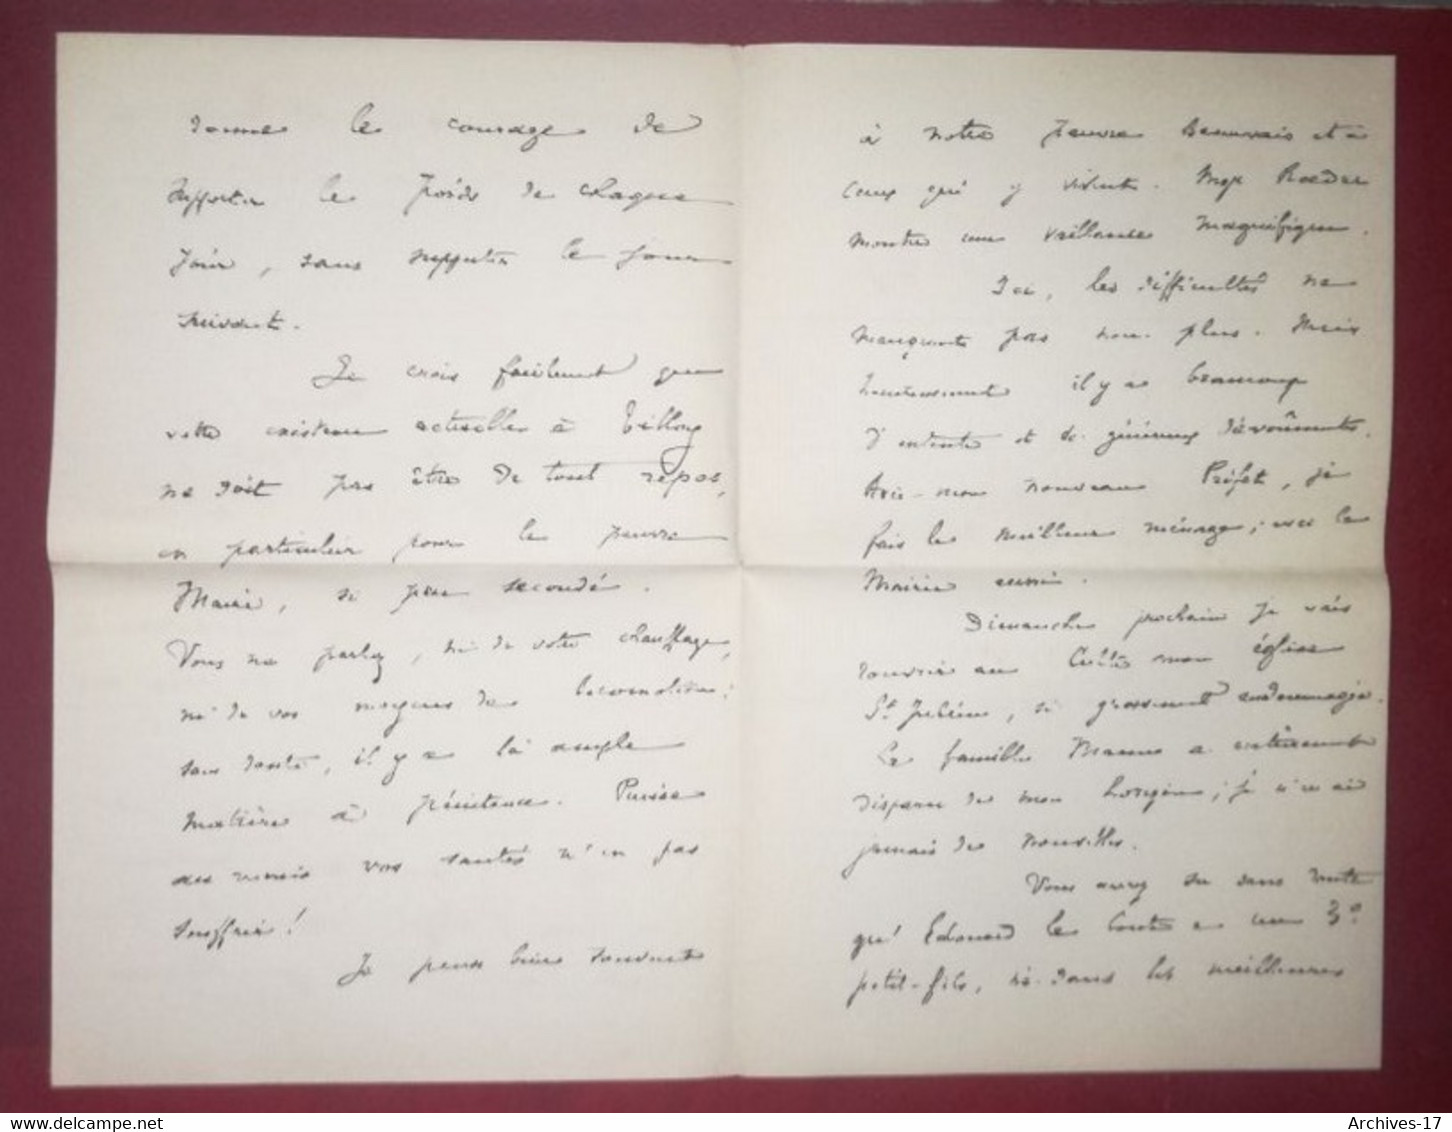 donne le courage de
supporter le poids de chaque
jour, sans supputer le jour
suivant.
Je crois facilement que
votre existence actuelle à Tilloy
ne doit pas être de tout repos,
en particulier pour le pauvre
Maire, si peu secondé.
Vous ne parlez, ni de votre chauffage,
ni de vos moyens de locomotion;
sans doute, il y a là ample
matière à pénitence. Puisse
au moins vos santés n'en pas
souffrir!
Je pense bien souvent
à notre pauvre Beauvais et à
ceux qui y vivent. Mgr Roeder
montre une vaillance magnifique.
Ici, les difficultés ne
manquent pas non plus. Mais
heureusement il y a beaucoup
d'entente et de généreux dévoûments.
Avec mon nouveau Préfet, je
fais le meilleur ménage; avec le
Maire aussi.
Dimanche prochain je vais
rouvrir au Culte mon église
St Julien, si gravement endommagée.
La famille Mame a entièrement
disparu de mon horizon; je n'en ai
jamais de nouvelles.
Vous avez su sans doute
qu'Edouard le Conte a un 3e
petit-fils, né dans les meilleures
Archives-17
www.delcampe.net